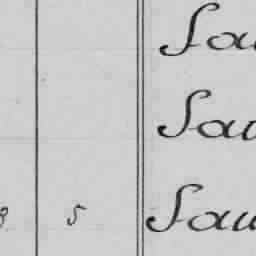 Sau
Sau
3 5 Sau